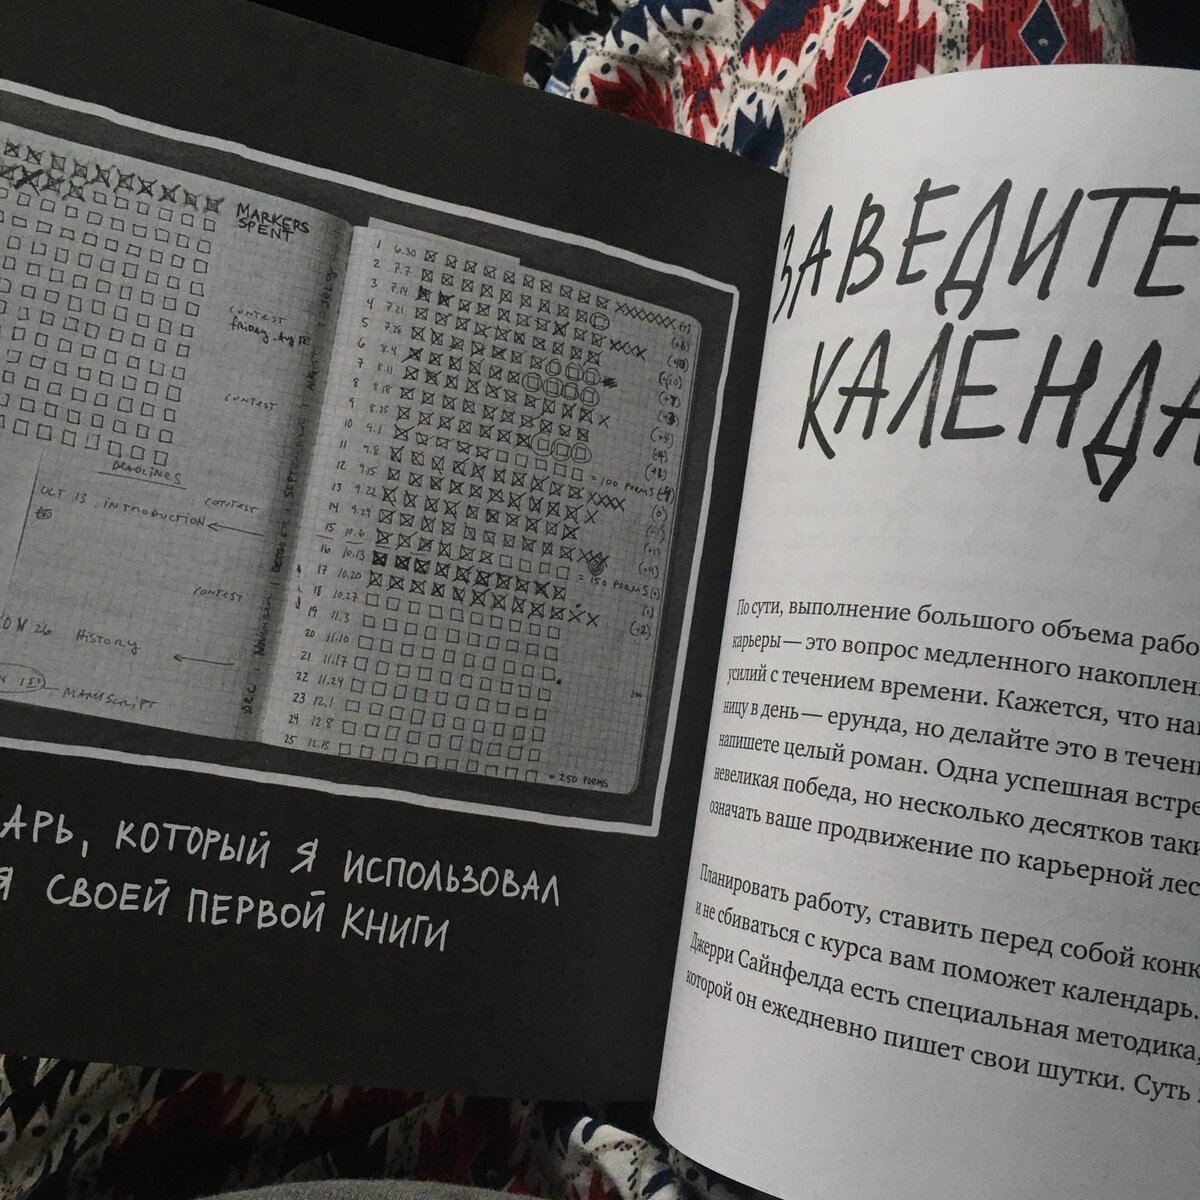 MARKERS
SPENT
CONTEST
FRIDAY, Aug
CONTEST
DEADLINES
OCT 13 INTRODUCTION
CONTEST
CONTEST
26 HISTORY
MANUSCRIPT
1 6.30
2 7.7
3 7.14
4 7.21
5 7.28
6 8.4
7 8.11
8 8.18
9 8.25
10 9.1
11 9.8 = 100 POEMS
12 9.15
13 9.22
14 9.29
15 10.6
16 10.13 = 150 POEMS
17 10.20
18 10.27
19 11.3
20 11.10
21 11.17
22 11.24 200
23 12.1
24 12.8
25 12.15
= 250 POEMS
АРЬ, КОТОРЫЙ Я ИСПОЛЬЗОВАЛ
Я СВОЕЙ ПЕРВОЙ КНИГИ
ЗАВЕДИТЕ
КАЛЕНДА
По сути, выполнение большого объема рабо
карьеры — это вопрос медленного накоплен
усилий с течением времени. Кажется, что на
ницу в день — ерунда, но делайте это в течен
напишете целый роман. Одна успешная встре
невеликая победа, но несколько десятков таки
означать ваше продвижение по карьерной лес
Планировать работу, ставить перед собой конк
и не сбиваться с курса вам поможет календарь.
Джерри Сайнфелда есть специальная методика,
которой он ежедневно пишет свои шутки. Суть